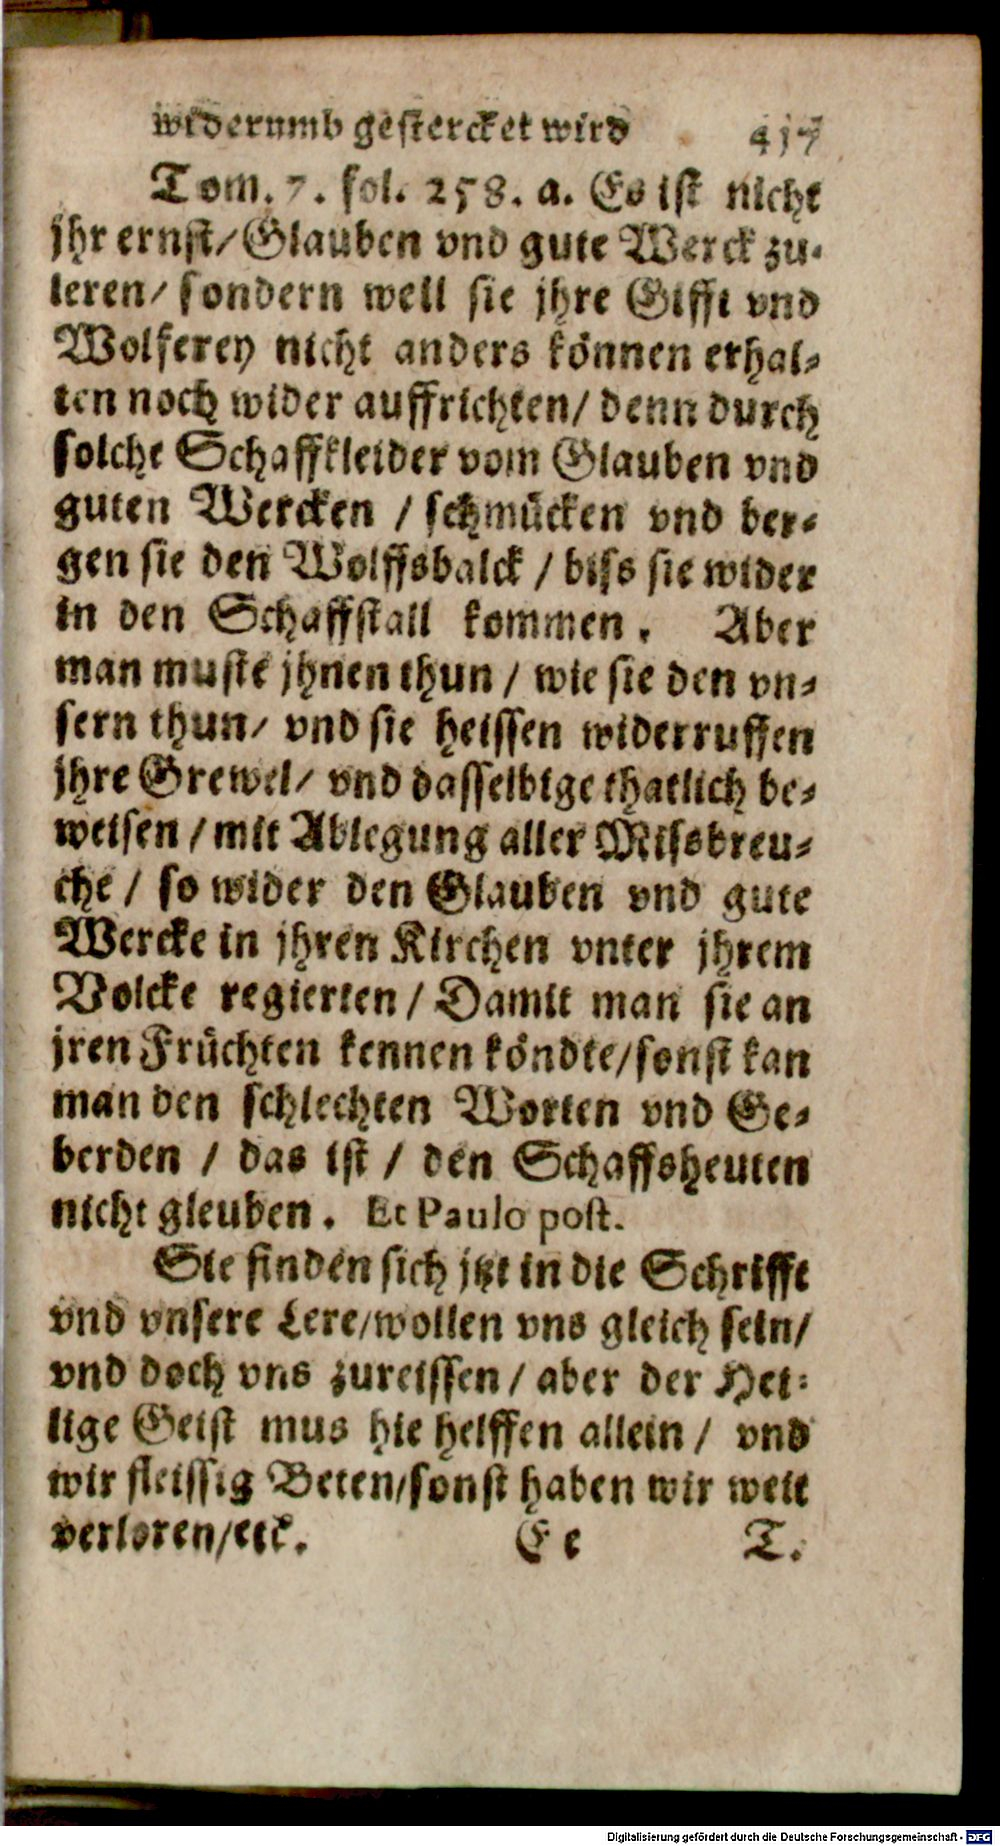 widerumb gestercket wird 417
Tom. 7. fol. 258. a. Es ist nicht
jhr ernst/ Glauben vnd gute Werck zu-
leren/ sondern weil sie jhre Gifft vnd
Wolferey nicht anders können erhal-
ten noch wider auffrichten/ denn durch
solche Schaffkleider vom Glauben vnd
guten Wercken / schmücken vnd ber-
gen sie den Wolffsbalck / biss sie wider
in den Schaffstall kommen. Aber
man muste jhnen thun / wie sie den vn-
sern thun/ vnd sie heissen widerruffen
jhre Grewel/ vnd dasselbige thatlich be-
weisen / mit Ablegung aller Missbreu-
che / so wider den Glauben vnd gute
Wercke in jhren Kirchen vnter jhrem
Volcke regierten / Damit man sie an
jren Früchten kennen köndte/sonst kan
man den schlechten Worten vnd Ge-
berden / das ist / den Schaffsheuten
nicht gleuben. Et Paulo post.
Sie finden sich jtzt in die Schrifft
vnd vnsere Lere/wollen vns gleich sein/
vnd doch vns zureissen / aber der Hei-
lige Geist mus hie helffen allein / vnd
wir fleissig Beten/sonst haben wir weit
verloren/etc. Ee T.
Digitalisierung gefördert durch die Deutsche Forschungsgemeinschaft - DFG